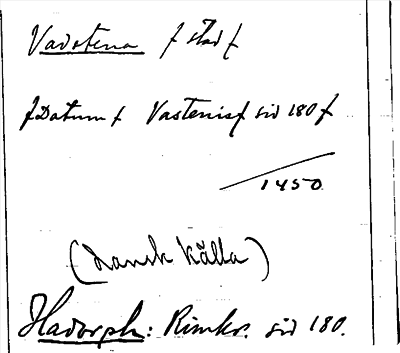 Vadstena / stad /
/ Datum / Vastenis / sid 180 /
1450
(Dansk källa)
Hadorph: Rimkr. sid 180.